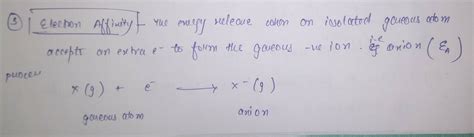 ③ Electron Affinity - The energy release when an insolated gaseous atom
accepts an extra e- to form the gaseous -ve ion. i.e anion (EA)
process
x(g) + e- ⟶ x-(g)
gaseous atom anion